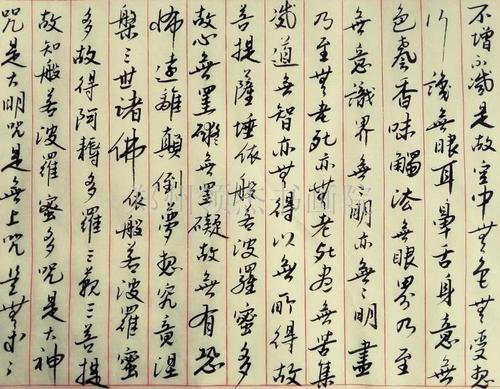 不增不減是故空中無色無受想
行識無眼耳鼻舌身意無
色聲香味觸法無眼界乃至
無意識界無〻明亦無〻明盡
乃至無老死亦無老死盡無苦集
滅道無智亦無得以無所得故
菩提薩埵依般若波羅蜜多
故心無罣礙無罣礙故無有恐
怖遠離顛倒夢想究竟涅
槃三世諸佛依般若波羅蜜
多故得阿耨多羅三藐三菩提
故知般若波羅蜜多咒是大神
咒是大明咒是無上咒是無等〻
书画院